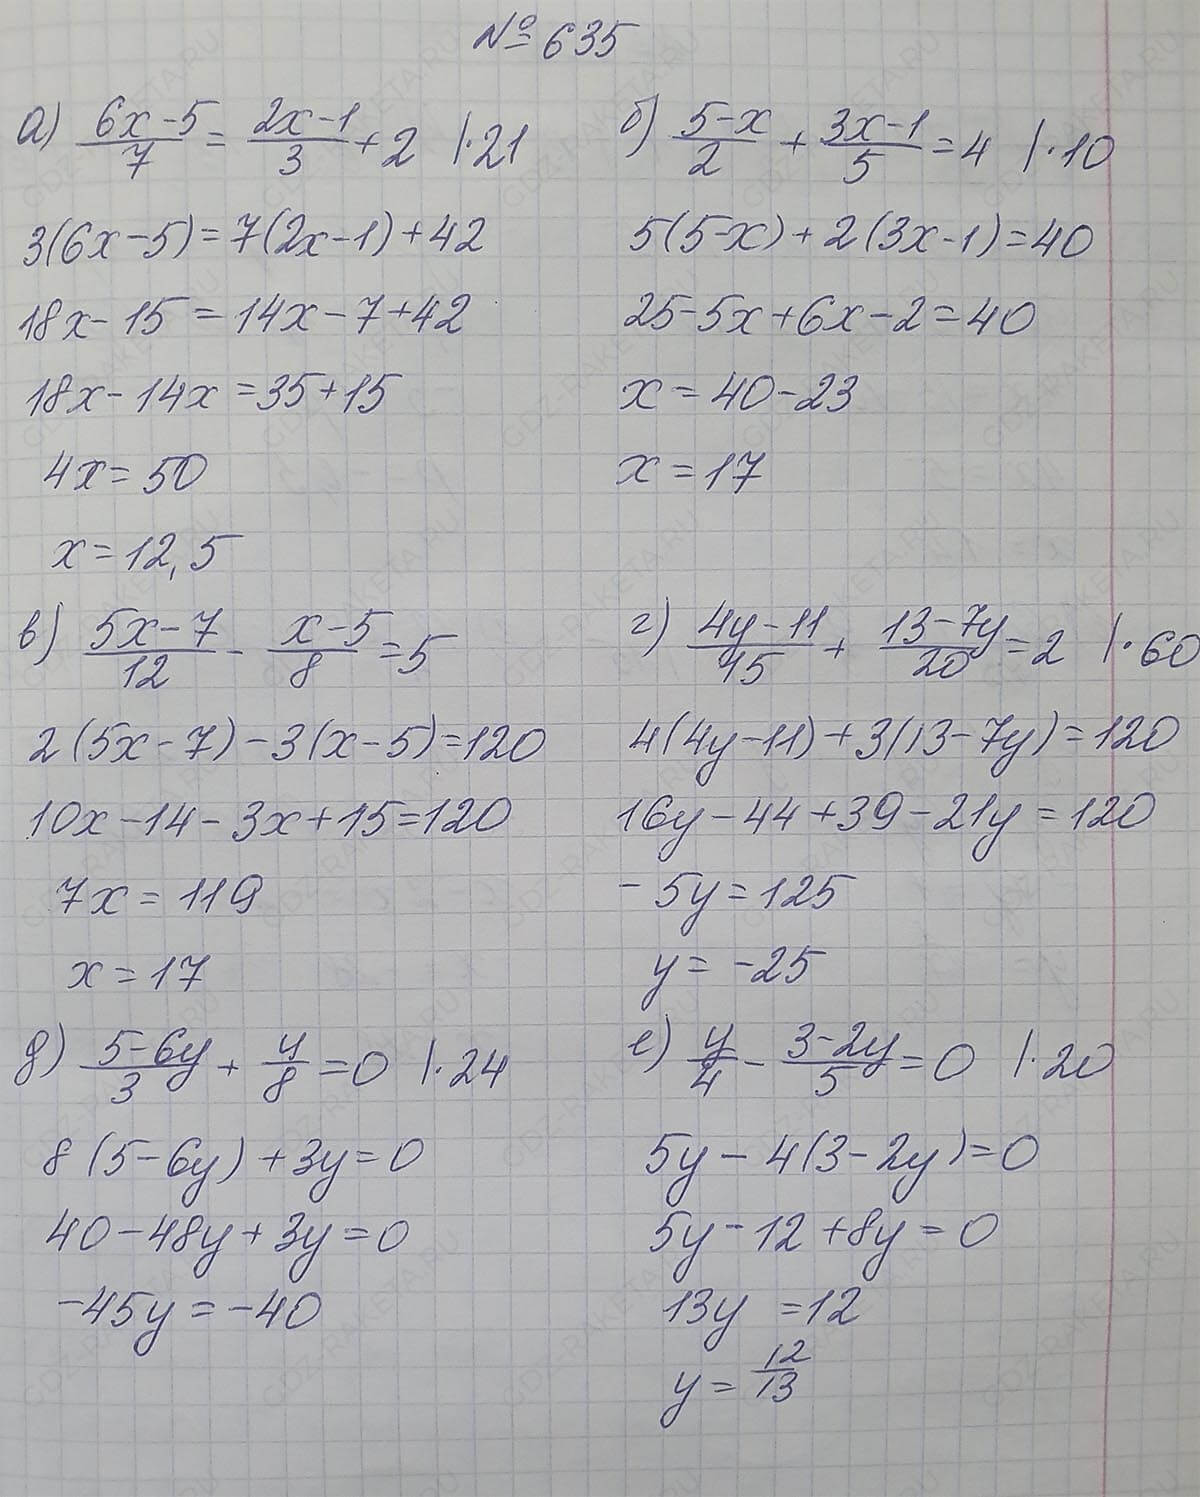 № 635
а) (6x-5)/7 = (2x-1)/3 + 2 |·21
3(6x-5)=7(2x-1)+42
18x-15=14x-7+42
18x-14x=35+15
4x=50
x=12,5
б) (5-x)/2 + (3x-1)/5 = 4 |·10
5(5-x)+2(3x-1)=40
25-5x+6x-2=40
x=40-23
x=17
в) (5x-7)/12 - (x-5)/8 = 5
2(5x-7)-3(x-5)=120
10x-14-3x+15=120
7x=119
x=17
г) (4y-11)/15 + (13-7y)/20 = 2 |·60
4(4y-11)+3(13-7y)=120
16y-44+39-21y=120
-5y=125
y=-25
д) (5-6y)/3 + y/8 = 0 |·24
8(5-6y)+3y=0
40-48y+3y=0
-45y=-40
е) y/4 - (3-2y)/5 = 0 |·20
5y-4(3-2y)=0
5y-12+8y=0
13y=12
y=12/13
GDZ-RAKETA.RU